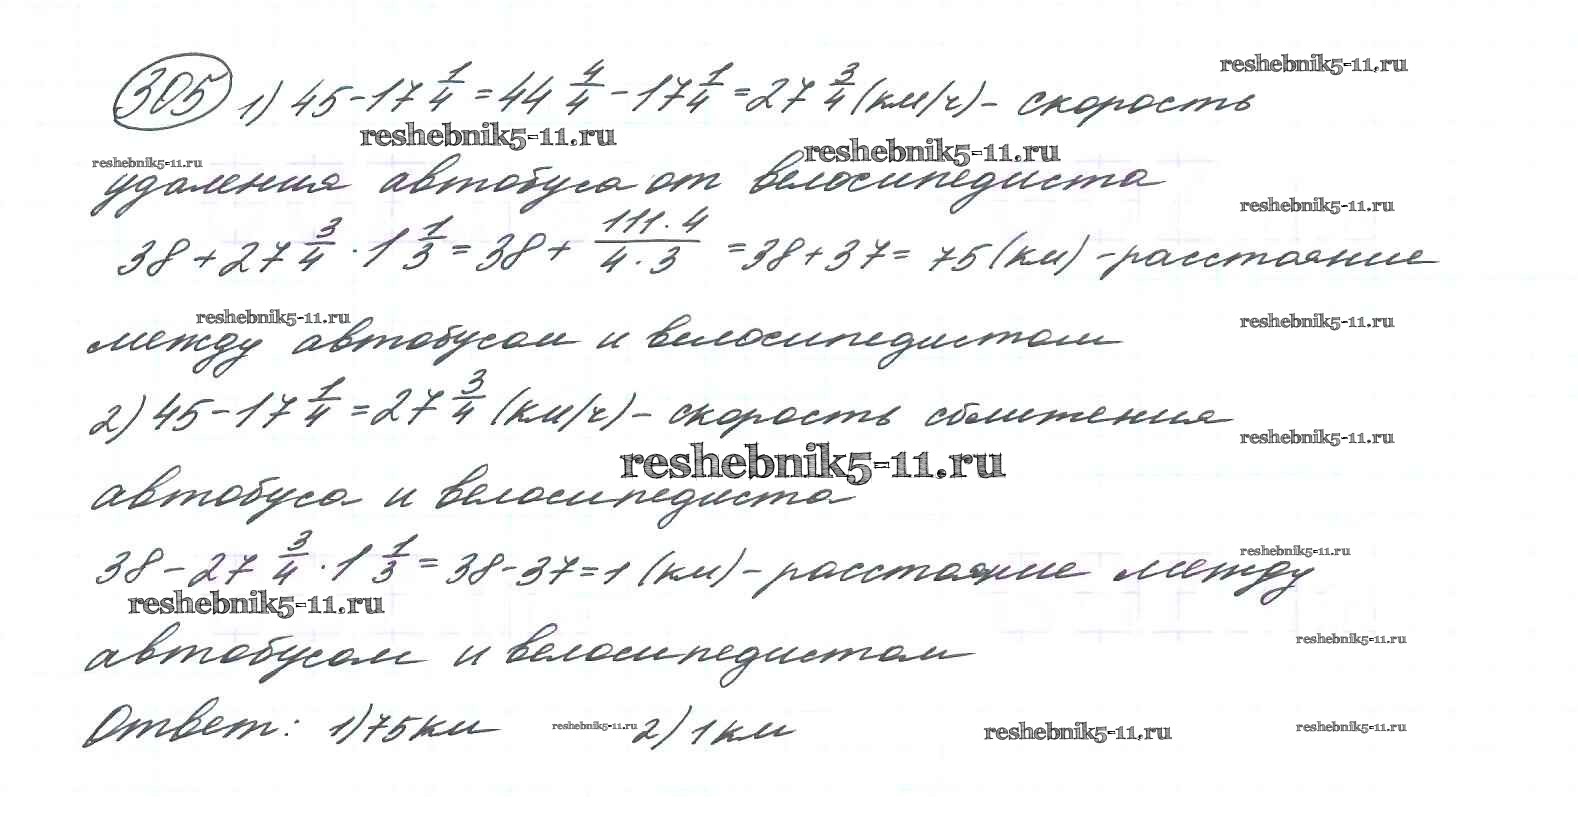 reshebnik5-11.ru
305 1) 45 - 17 1/4 = 44 4/4 - 17 1/4 = 27 3/4 (км/ч) - скорость
reshebnik5-11.ru
reshebnik5-11.ru
reshebnik5-11.ru
удаления автобуса от велосипедиста
reshebnik5-11.ru
38 + 27 3/4 · 1 1/3 = 38 + 111·4/4·3 = 38 + 37 = 75 (км) - расстояние
reshebnik5-11.ru
reshebnik5-11.ru
между автобусом и велосипедистом
2) 45 - 17 1/4 = 27 3/4 (км/ч) - скорость сближения
reshebnik5-11.ru
reshebnik5-11.ru
автобуса и велосипедиста
reshebnik5-11.ru
38 - 27 3/4 · 1 1/3 = 38 - 37 = 1 (км) - расстояние между
reshebnik5-11.ru
reshebnik5-11.ru
автобусом и велосипедистом
Ответ: 1) 75 км 2) 1 км
reshebnik5-11.ru
reshebnik5-11.ru
reshebnik5-11.ru